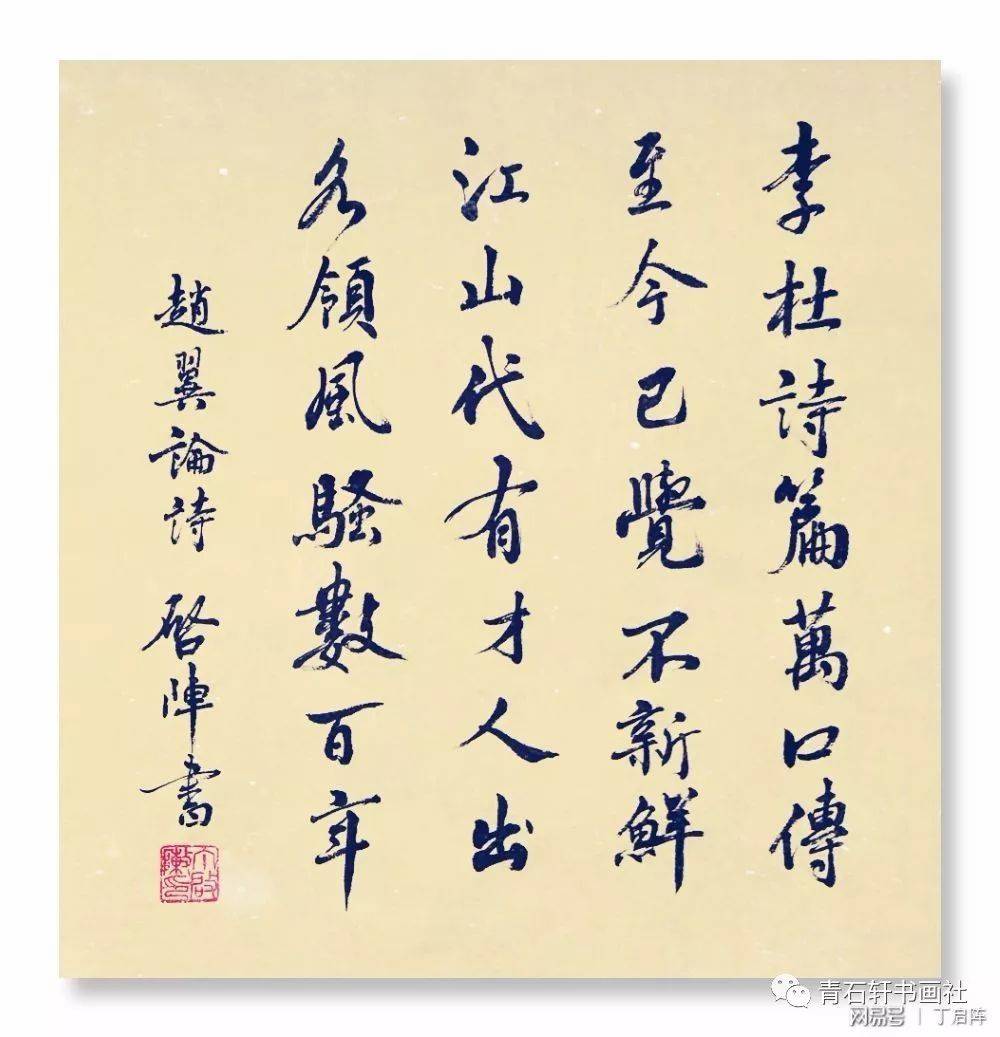 李杜詩篇萬口傳
至今已覺不新鮮
江山代有才人出
各領風騷數百年
趙翼論詩 啓陣書
丁啟陣印
青石轩书画社
网易号 | 丁启阵